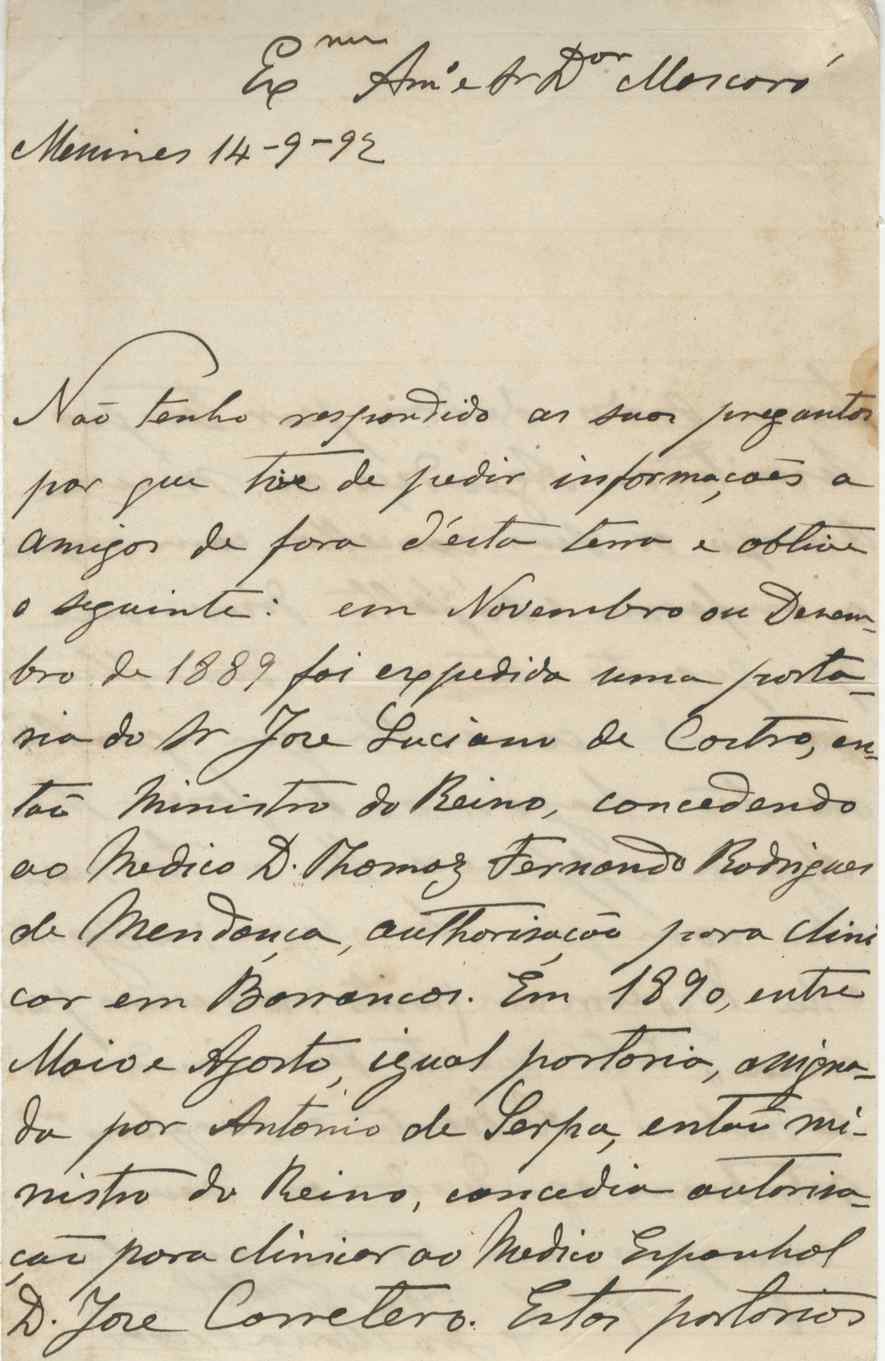 Exmo Amº e Sr Dor Mascaró
Messines 14-9-92
Não tenho respondido as suas preguntas
por que tive de pedir informações a
amigos de fora d'esta terra e obtive
o seguinte: em Novembro ou Dezem-
bro de 1889 foi expedida uma porta-
ria do Sr Jose Luciano de Castro, en-
taõ Ministro do Reino, concedendo
ao Medico D. Thomaz Fernando Rodrigues
de Mendonça, authorisação para clini
car em Barrancos. Em 1890, entre
Maio e Agosto, igual portaria, assigna-
da por António de Serpa, entaõ mi-
nistro do Reino, concedia autorisa-
çaõ para clinicar ao Medico Espanhol
D. Jose Carretero. Estas portarias